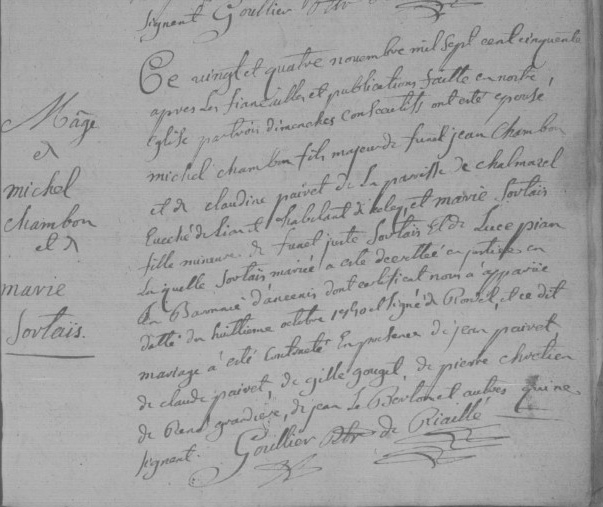 signent Goullier Ptr
Mâge
et
michel
chambon
et
marie
Sortais.
Ce vingt et quatre novembre mil sept cent cinquante
apres les fiancailles et publications faitte en nostre
Eglise par trois dimenches consecutifs ont esté epousé
michel chambon fils majeur de funet jean Chambon
et de claudine paivet de la parrisse de chalmazel
Euché de Lion et habitant d' et marie Sortais
fille mineure de funet juste Sortais Et de Luce pian
Laquelle Sortais mariée a esté decrettée en justice en
La Baronnie d'ancenis dont certificat nous a apparüe
datté du huittieme octobre 1750 signé de et ce dit
mariage a esté Contracté En presence de jean paivet,
de claude paivet de gille gouget, de pierre chretien
de René grandiere, de jean Le Berton et autres qui ne
signent. Goullier Ptr de Riaillé